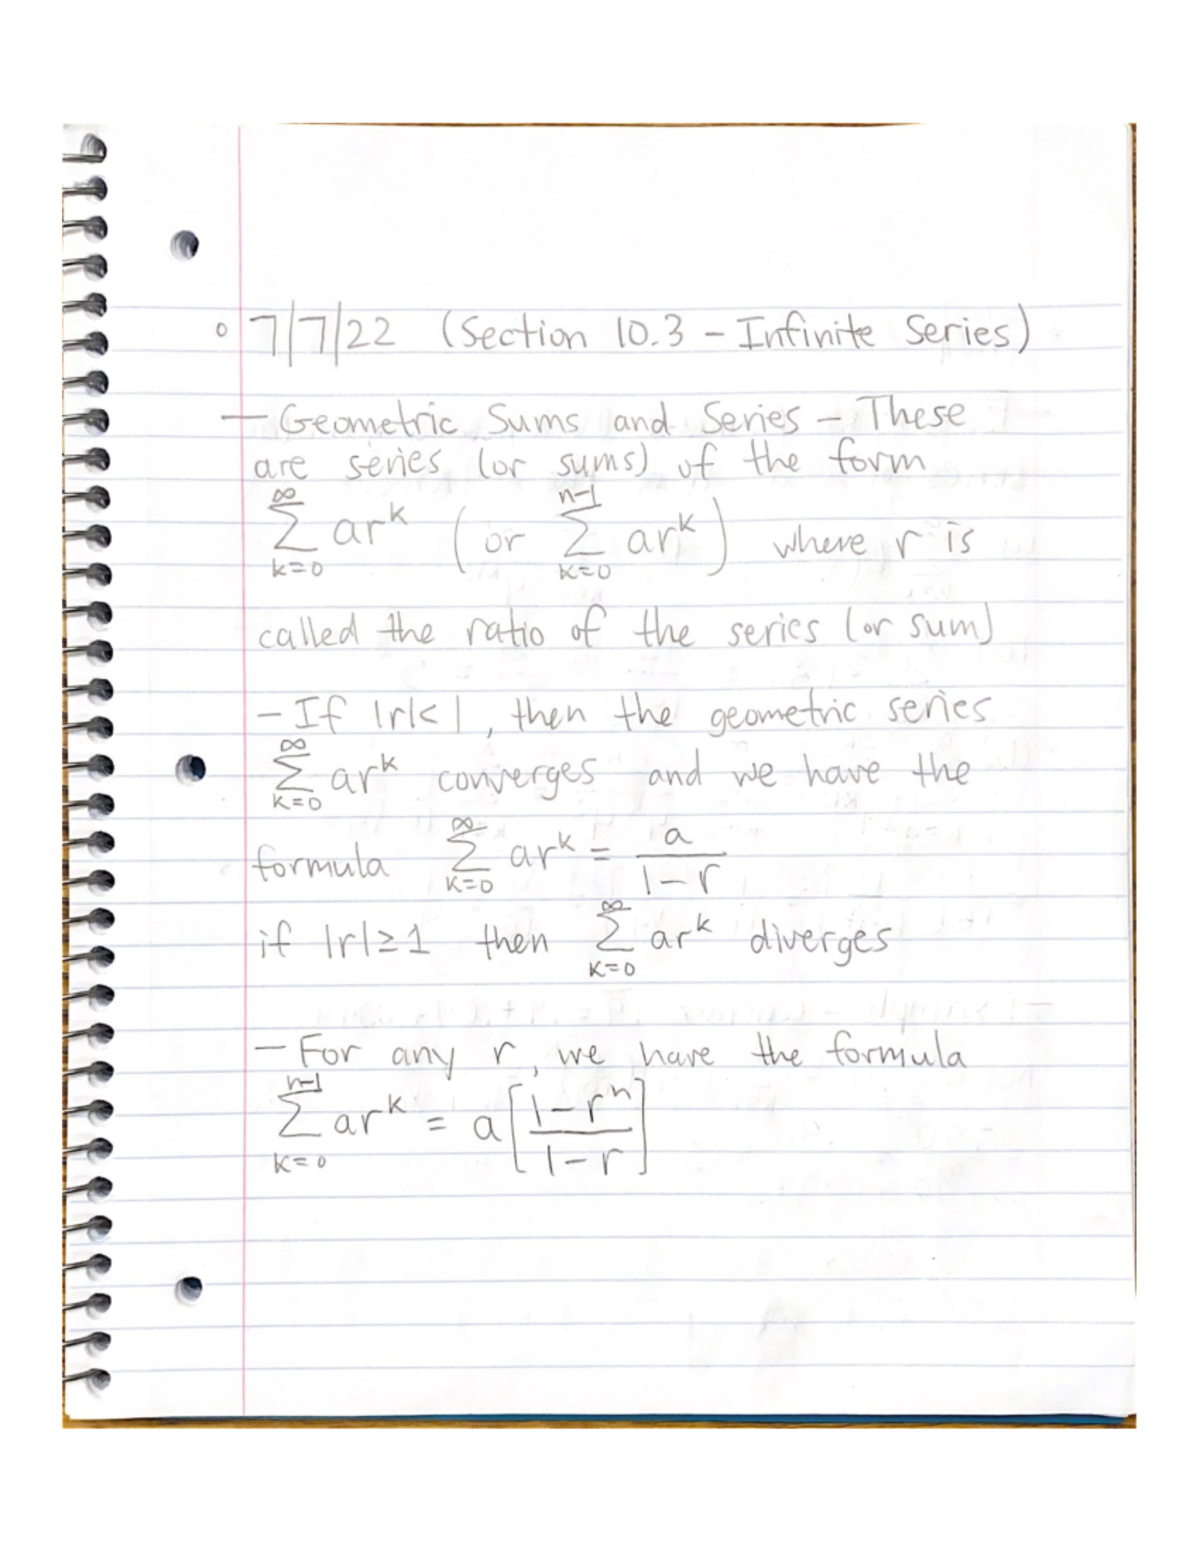 7/7/22 (Section 10.3 - Infinite Series)
— Geometric Sums and Series - These
are series (or sums) of the form
∞ n-1
Σ ar^k (or Σ ar^k) where r is
k=0 k=0
called the ratio of the series (or sum)
- If |r|<1, then the geometric series
∞
Σ ar^k converges and we have the
k=0
∞
formula Σ ar^k = a/(1-r)
k=0
∞
if |r|≥1 then Σ ar^k diverges
k=0
- For any r, we have the formula
n-1
Σ ar^k = a[(1-r^n)/(1-r)]
k=0